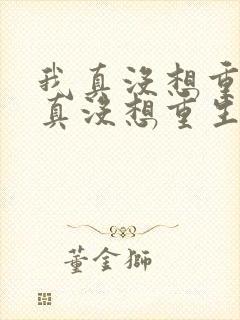 我真没想重
真没想重生
董金狮